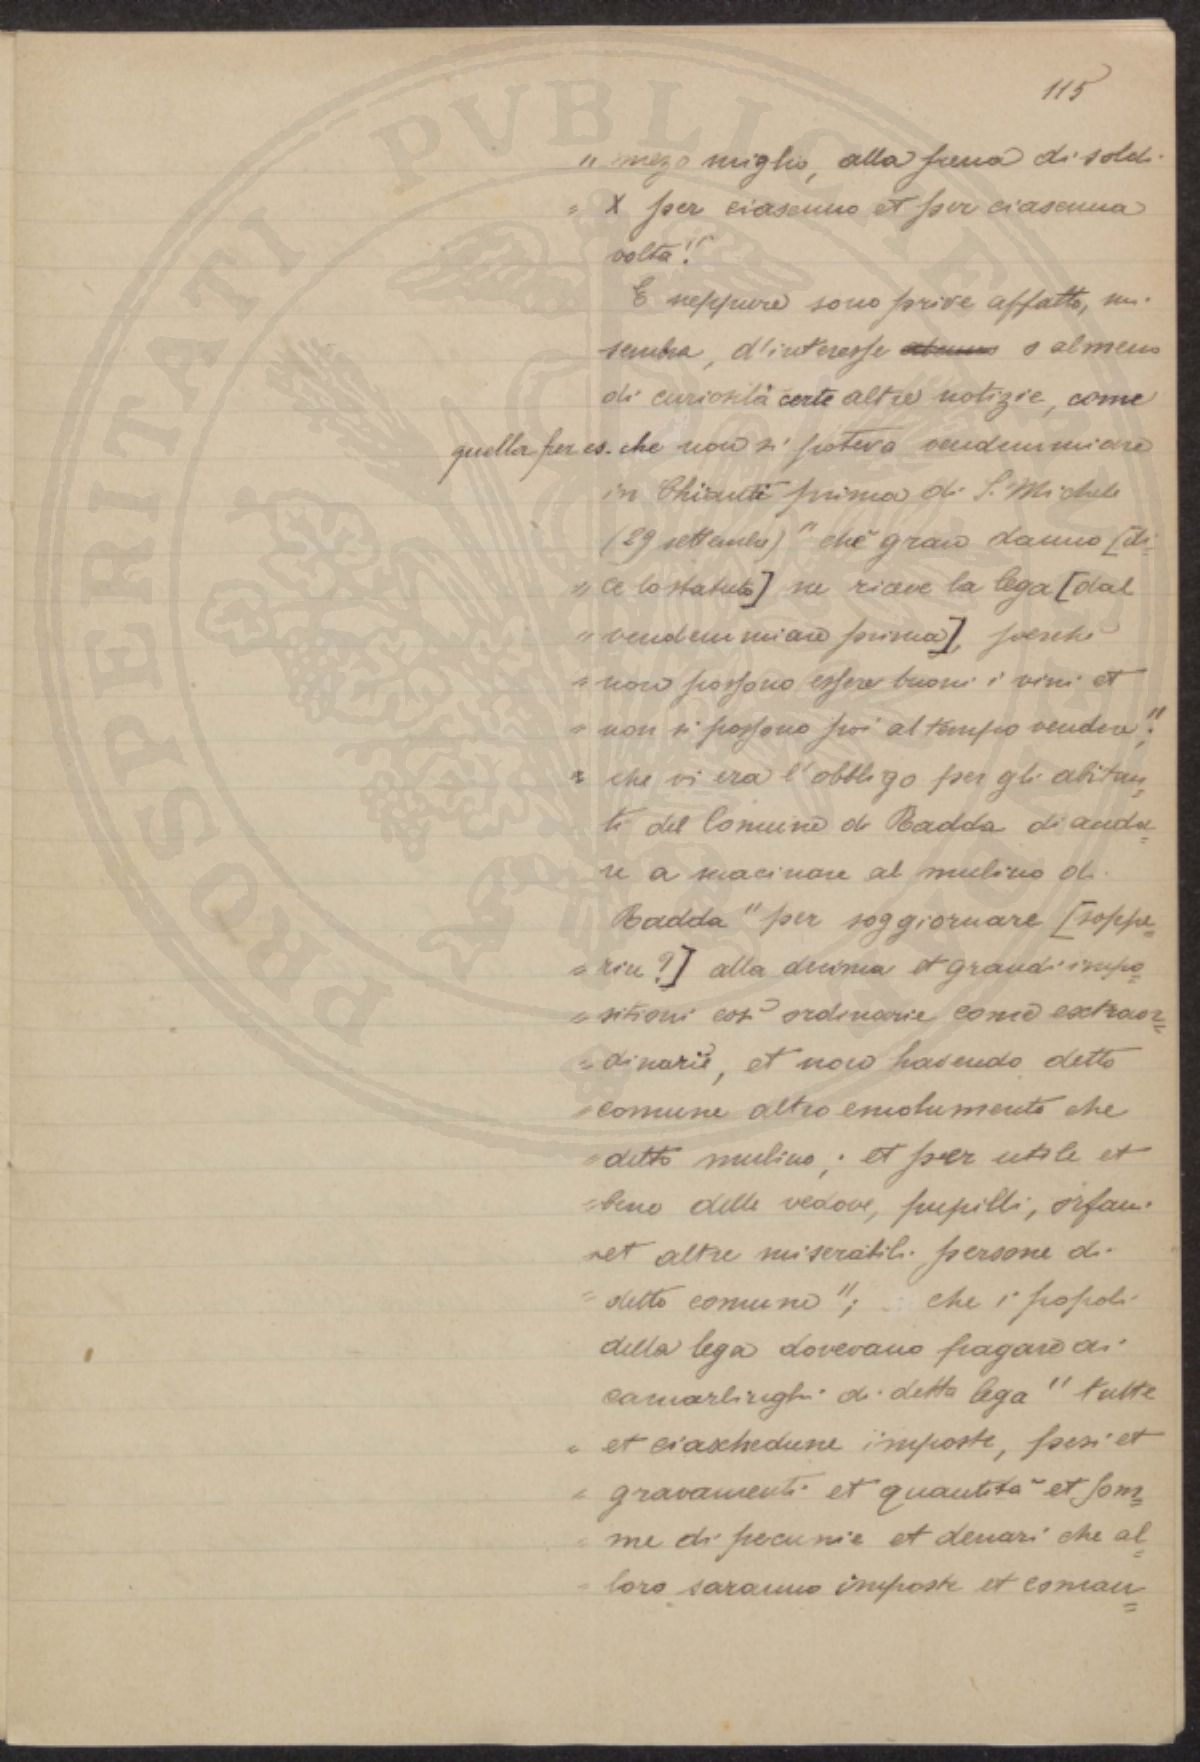 115
" mezo miglio, alla pena di soldi
" X per ciascuno et per ciascuna
volta".
E neppure sono prive affatto, mi
sembra, d'interesse alcuno o almeno
di curiosità certe altre notizie, come
quella per es. che non si poteva vendemmiare
in Chianti prima di S. Michele
(29 settembre) " chè gran danno [di-
" ce lo statuto] ne riceve la lega [dal
" vendemmiare prima], perchè
" non possono essere buoni i vini et
" non si possono poi al tempo vendere";
che vi era l'obbligo per gli abitan=
ti del Comune di Radda di anda=
re a macinare al mulino di
Radda " per soggiornare [soppe=
" rire?] alla decima et grandi impo=
" sitioni così ordinarie come extraor=
" dinarie, et non havendo detto
" comune altro emolumento che
" detto mulino; et per utile et
" bene delle vedove, pupilli, orfani
" et altre miserabili persone di
" detto comune"; che i popoli
della lega dovevano pagare ai
camarlinghi di detta lega " tutte
" et ciaschedune imposte, pesi et
" gravamenti et quantità et som=
" me di pecunie et denari che al=
" loro saranno imposte et coman=
PROSPERITATI PVBLICAE